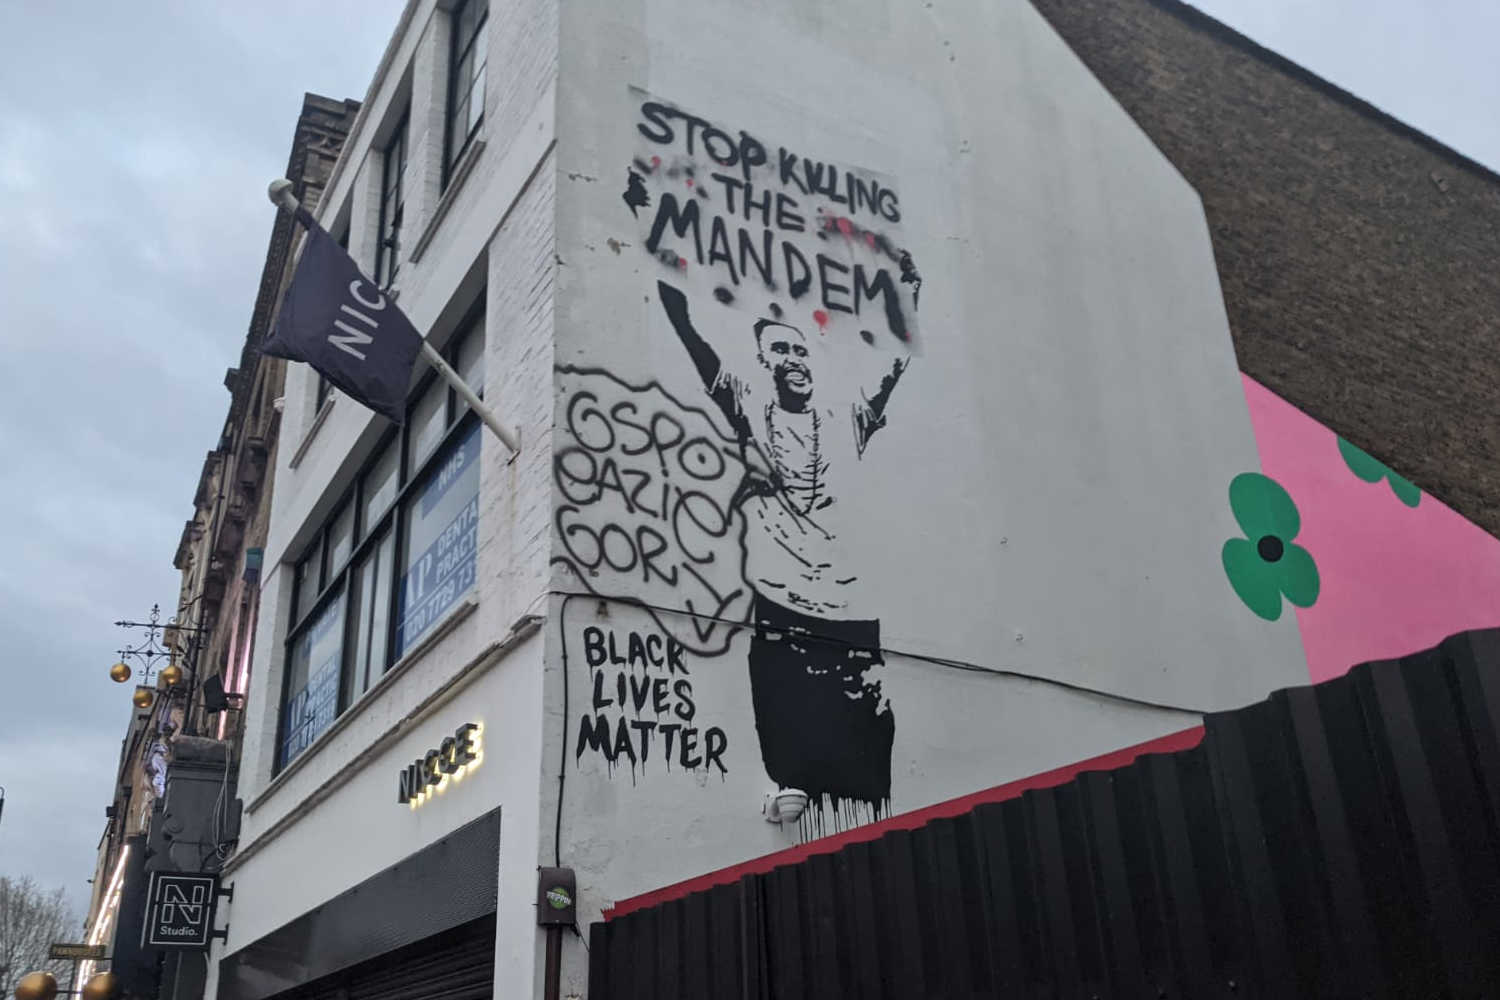 STOP KILLING
THE
MANDEM
NIC
GSPOT
EAZIE
GOR
BLACK
LIVES
MATTER
NHS
AP
DENTA
PRACT
020 7729 73
NICCE
N
Studio.